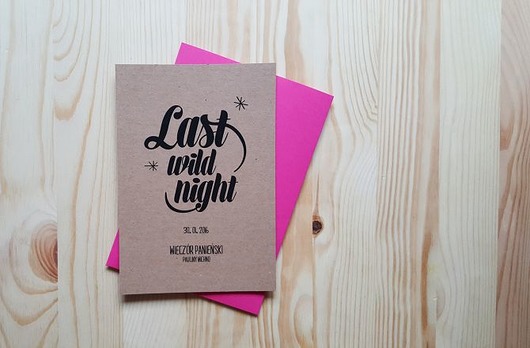 Last
wild
night
30. 01. 2016
WIECZÓR PANIEŃSKI